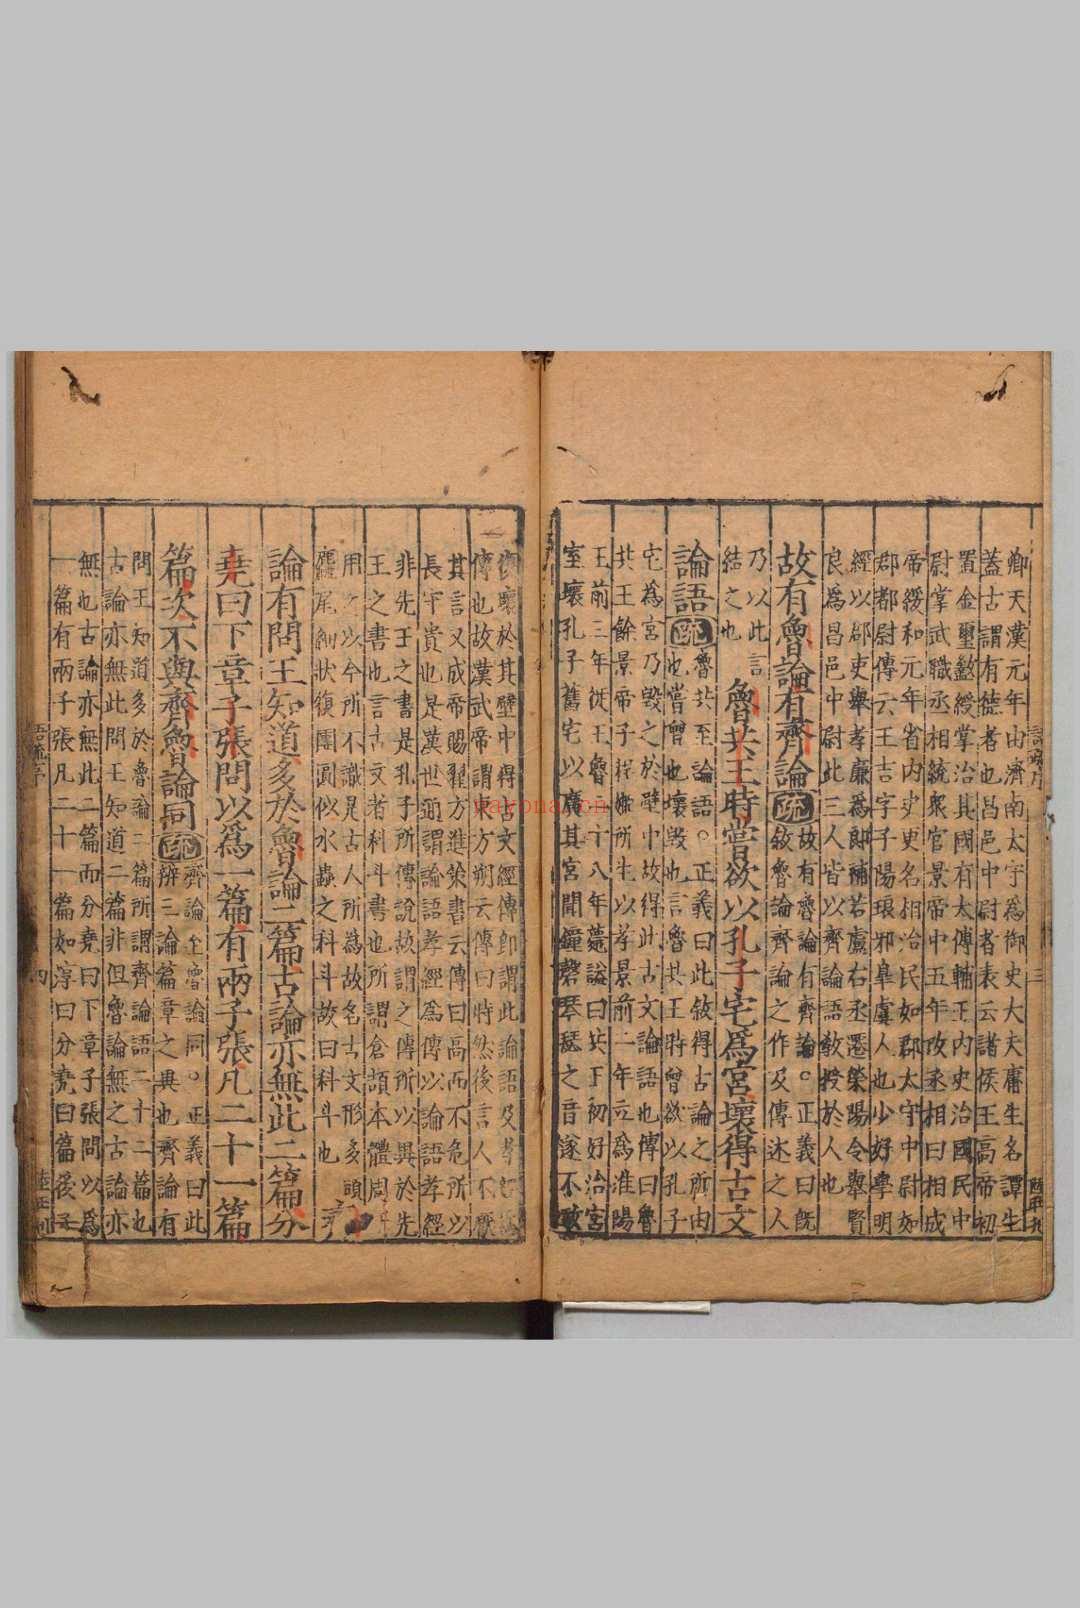 卿天漢元年由濟南太守爲御史大夫庸生名譚生
蓋古謂有德者也昌邑中尉者表云諸侯王高帝初
置金璽盭綬掌治其國有太傅輔王內史治國民中
尉掌武職丞相統衆官景帝中五年攺丞相曰相成
帝綏和元年省內史史名相治民如郡太守中尉如
郡都尉傳云王吉字子陽琅邪皐虞人也少好學明
經以郡吏舉孝廉爲郎補若盧右丞遷榮陽令舉賢
良爲昌邑中尉此三人皆以齊論語敎授於人也
故有魯論有齊論
疏
故有魯論有齊論○正義曰旣
敘魯論齊論之作及傳述之人
乃以此言
結之也
魯共王時嘗欲以孔子宅爲宮壞得古文
論語
疏
魯共至論語○正義曰此敘得古論之所由
也嘗曾也壞毀也言魯共王時曾欲以孔子
宅爲宮乃毀之於壁中故得此古文論語也傳曰魯
共王餘景帝子程姬所生以孝景前二年立爲淮陽
王前三年徙王魯二十八年薨謚曰共王初好治宮
室壞孔子舊宅以廣其宮聞鐘磬琴瑟之音遂不敢
復壞於其壁中得古文經傳卽謂此論語及孝經
傳也故漢武帝謂東方朔云傳曰時然後言人不厭
其言又成帝賜翟方進策書云傳曰高而不危所以
長守貴也是漢世通謂論語孝經爲傳以論語孝經
非先王之書是孔子所傳說故謂之傳所以異於先
王之書也言古文者科斗書也所謂倉頡本體周
用之以今所不識是古人所爲故名古文形多頭
麤尾細狀復團圓似水蟲之科斗故曰科斗也
論有問王知道多於魯論二篇古論亦無此二篇分
堯曰下章子張問以爲一篇有兩子張凡二十一篇
篇次不與齊魯論同
疏
齊論至魯論同○正義曰此
辨三論篇章之異也齊論有
問王知道多於魯論二篇所謂齊論語二十二篇也
古論亦無此問王知道二篇非但魯論無之古論亦
無也古論亦無此二篇而分堯曰下章子張問以爲
一篇有兩子張凡二十一篇如淳曰分堯曰篇後子
四
kayona.cn